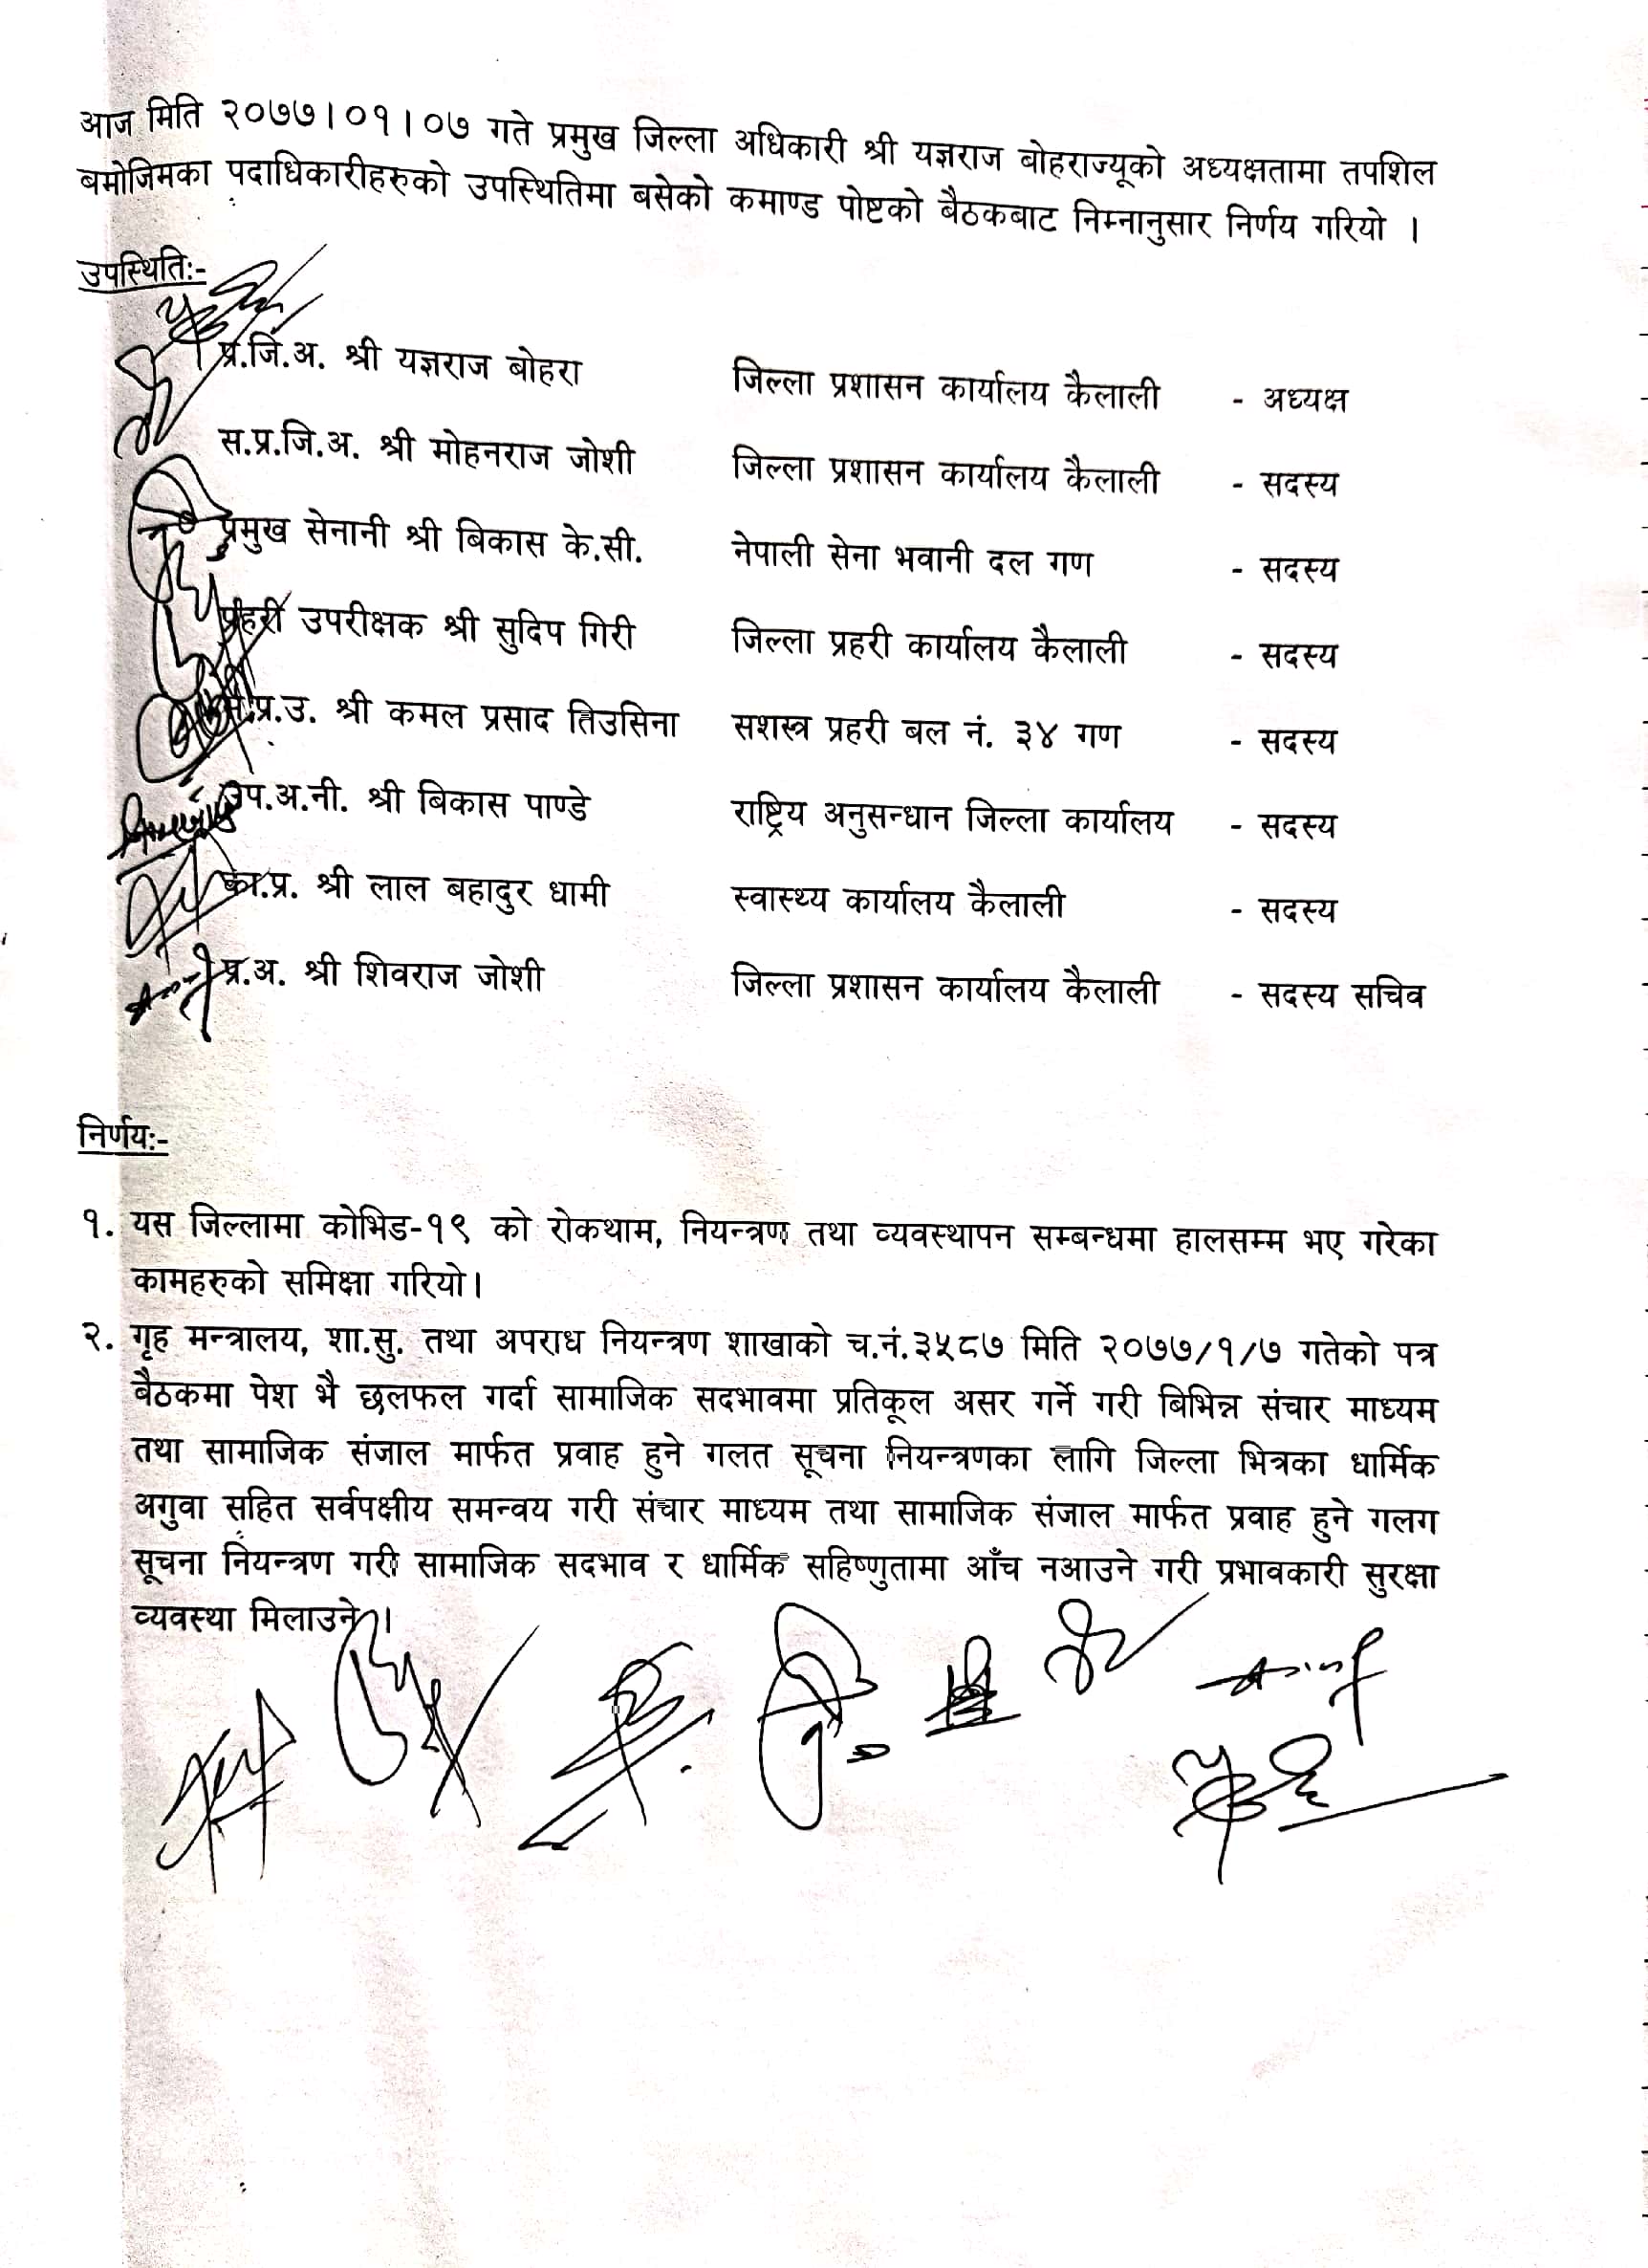 आज मिति २०७७।०१।०७ गते प्रमुख जिल्ला अधिकारी श्री यज्ञराज बोहराज्यूको अध्यक्षतामा तपशिल
बमोजिमका पदाधिकारीहरुको उपस्थितिमा बसेको कमाण्ड पोष्टको बैठकबाट निम्नानुसार निर्णय गरियो ।
उपस्थितिः-
प्र.जि.अ. श्री यज्ञराज बोहरा जिल्ला प्रशासन कार्यालय कैलाली - अध्यक्ष
स.प्र.जि.अ. श्री मोहनराज जोशी जिल्ला प्रशासन कार्यालय कैलाली - सदस्य
प्रमुख सेनानी श्री बिकास के.सी. नेपाली सेना भवानी दल गण - सदस्य
प्रहरी उपरीक्षक श्री सुदिप गिरी जिल्ला प्रहरी कार्यालय कैलाली - सदस्य
स.प्र.उ. श्री कमल प्रसाद तिउसिना सशस्त्र प्रहरी बल नं. ३४ गण - सदस्य
उप.अ.नी. श्री बिकास पाण्डे राष्ट्रिय अनुसन्धान जिल्ला कार्यालय - सदस्य
का.प्र. श्री लाल बहादुर धामी स्वास्थ्य कार्यालय कैलाली - सदस्य
प्र.अ. श्री शिवराज जोशी जिल्ला प्रशासन कार्यालय कैलाली - सदस्य सचिव
निर्णयः-
१. यस जिल्लामा कोभिड-१९ को रोकथाम, नियन्त्रण तथा व्यवस्थापन सम्बन्धमा हालसम्म भए गरेका
कामहरुको समिक्षा गरियो।
२. गृह मन्त्रालय, शा.सु. तथा अपराध नियन्त्रण शाखाको च.नं.३५८७ मिति २०७७/१/७ गतेको पत्र
बैठकमा पेश भै छलफल गर्दा सामाजिक सदभावमा प्रतिकूल असर गर्ने गरी बिभिन्न संचार माध्यम
तथा सामाजिक संजाल मार्फत प्रवाह हुने गलत सूचना नियन्त्रणका लागि जिल्ला भित्रका धार्मिक
अगुवा सहित सर्वपक्षीय समन्वय गरी संचार माध्यम तथा सामाजिक संजाल मार्फत प्रवाह हुने गलग
सूचना नियन्त्रण गरी सामाजिक सदभाव र धार्मिक सहिष्णुतामा आँच नआउने गरी प्रभावकारी सुरक्षा
व्यवस्था मिलाउने ।